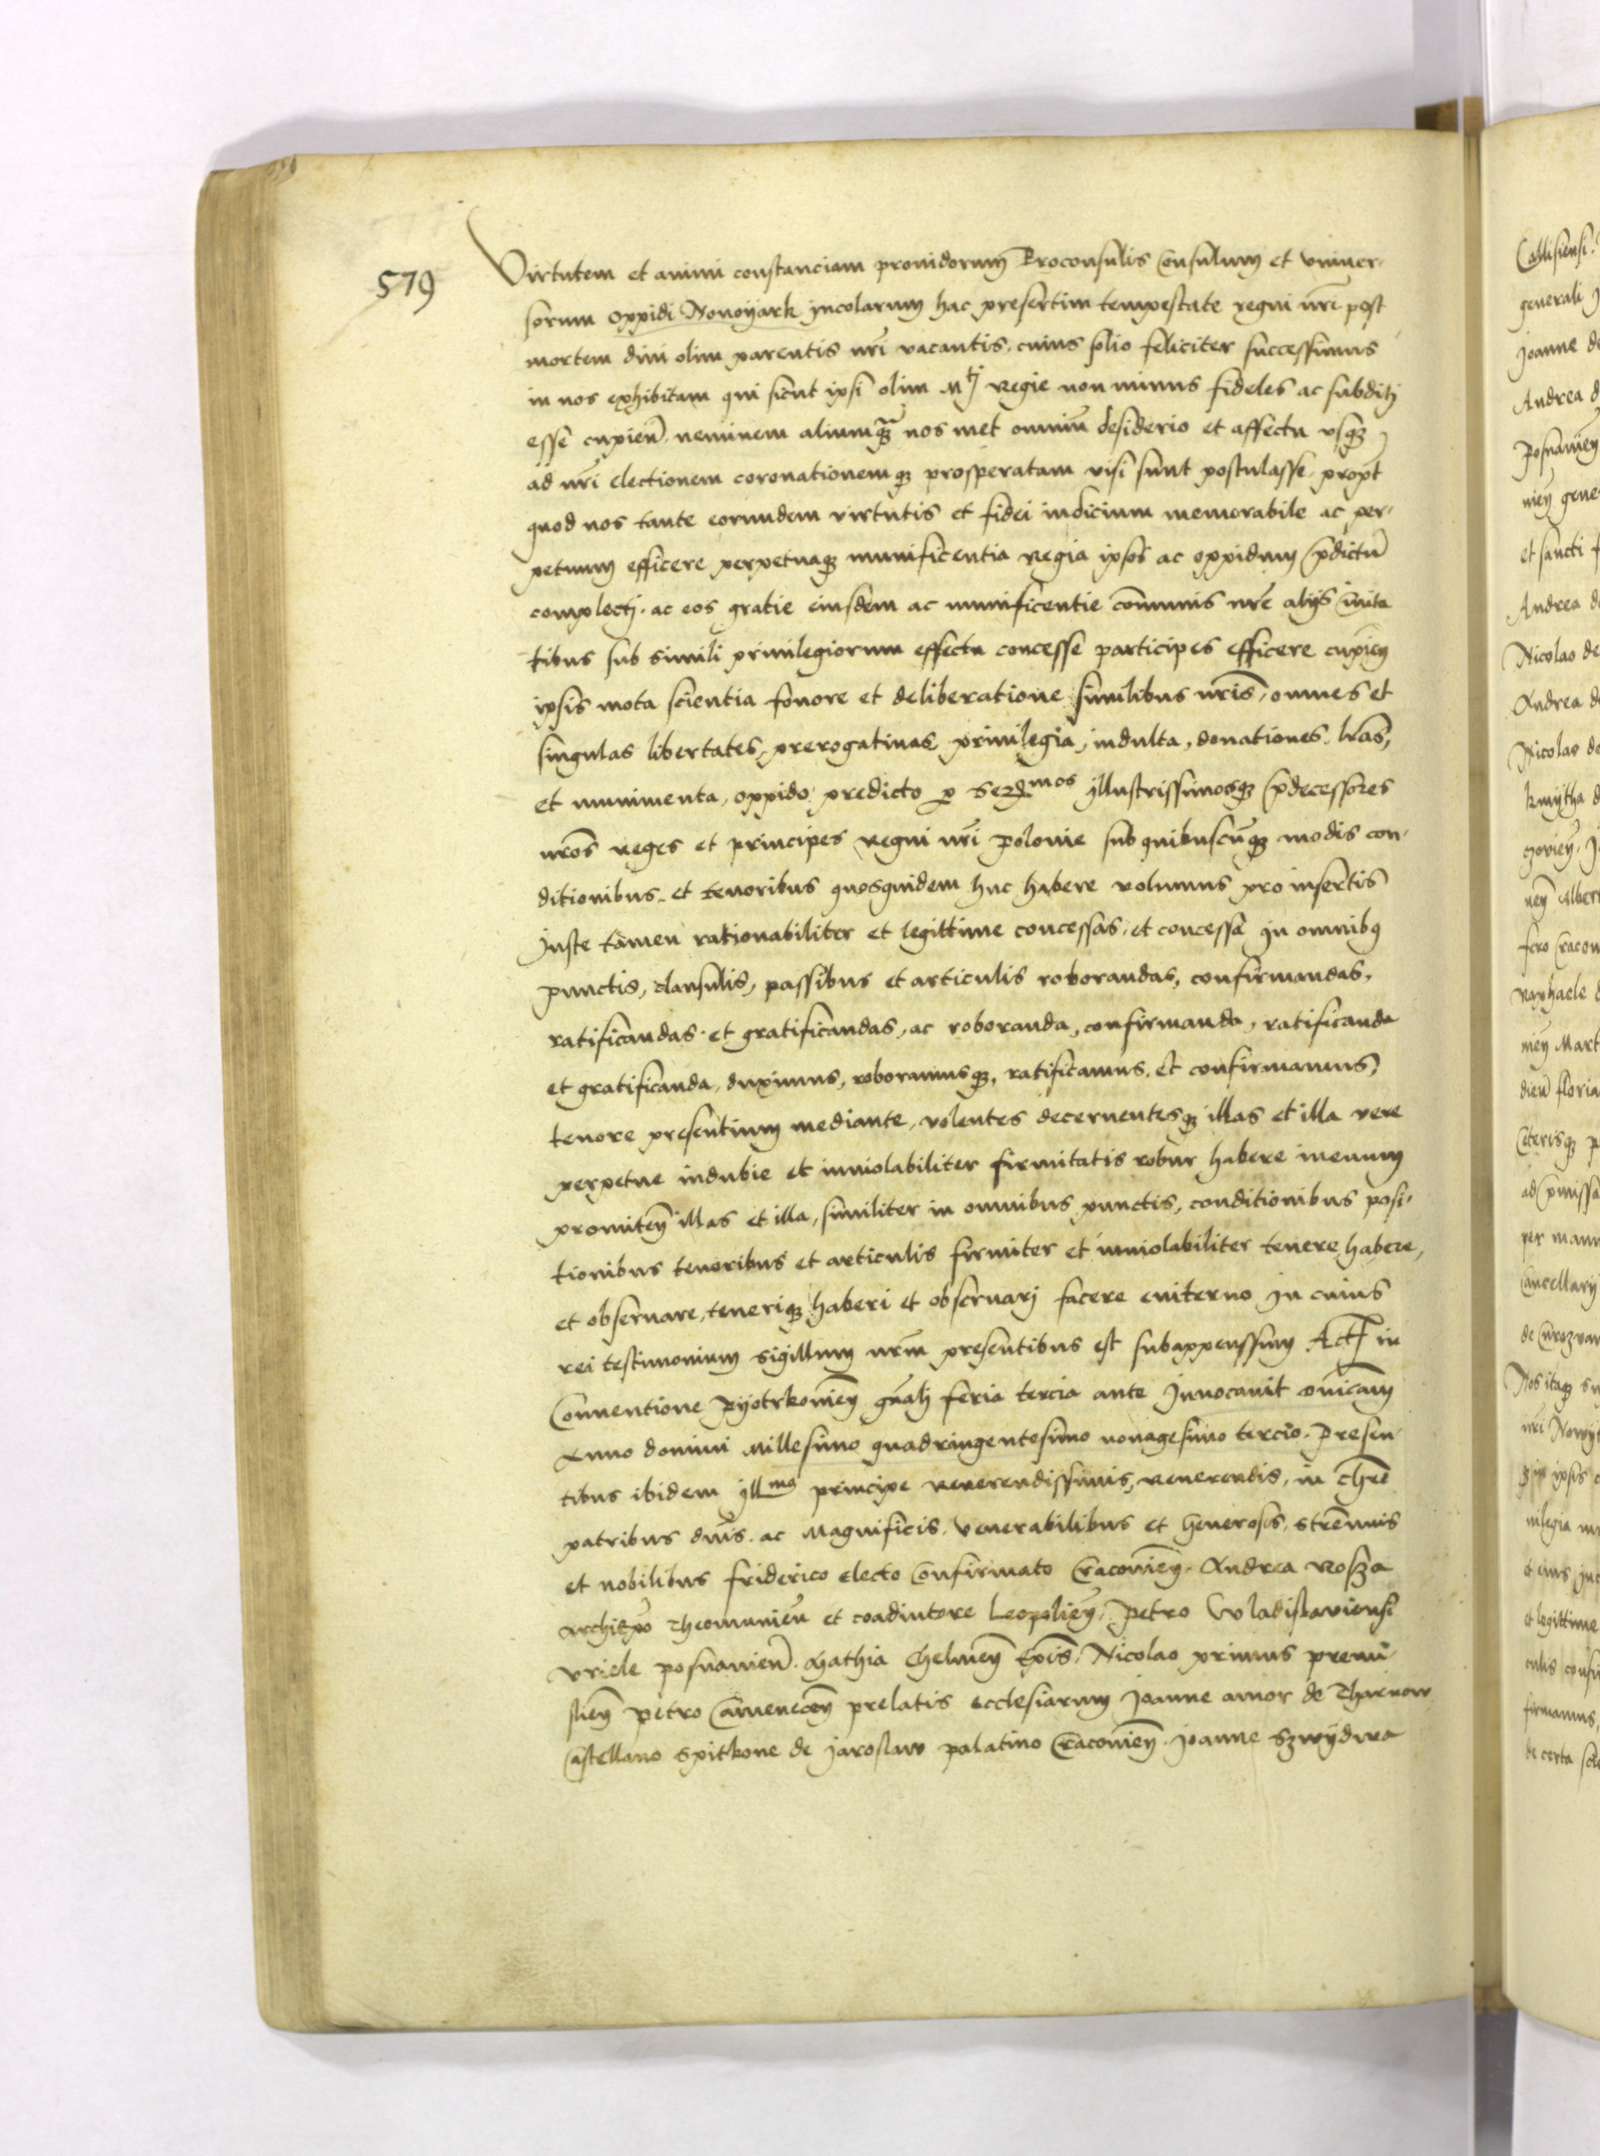 579
Virtutem et animi constanciam prouidorum Proconsulis Consulum et vniuer-
sorum oppidi Nowoÿtark incolarum hac presertim tempestate regni nr̄i post
mortem diui olim parentis nr̄i vacantis, cuius solio feliciter successimus
in nos exhibitam qui sicut ipsi olim Mtj Regie non minus fideles ac subditj
esse cupien̄ neminem aliumq̄ꝫ nos met omniū desiderio et affectu vsqꝫ
ad nr̄i electionem coronationemqꝫ prosperatam visi sunt postulasse propt̄
quod nos tante eorundem virtutis et fidei indicium memorabile ac per-
petuum efficere perpetuaqꝫ munificentia Regia ipsos ac oppidum p̄dictū
complectj, ac eos gratie eiusdem ac munificentie com̄unis nr̄e alijs ciuita
tibus sub simili priuilegiorum effectu concesse participes efficere cupien̄
ipsis mota scientia fouore et deliberatione similibus nr̄is, omnes et
singulas libertates, prerogatiuas, priuilegia, indulta, donationes, lr̄as,
et munimenta, oppido predicto ꝑ Ser̄mos illustrissimosqꝫ p̄decessores
nr̄os reges et principes Regni nr̄i Polonie sub quibuscūqꝫ modis con-
ditionibus, et tenoribus quosquidem huc habere volumus pro insertis
Juste tamen rationabiliter et legittime concessas, et concessa in omnibꝰ
punctis, clausulis, passibus et articulis roborandas, confirmandas,
ratificandas et gratificandas, ac roboranda, confirmanda, ratificanda
et gratificanda, duximus, roboramusqꝫ, ratificamus, et confirmamus,
tenore presentium mediante, volentes decernentesqꝫ illas et illa vere
perpetue indubie et inuiolabiliter firmitatis robur habere in euum
promiten̄ illas et illa, similiter in omnibus punctis, conditionibus posi-
tionibus tenoribus et articulis firmiter et inuiolabiliter tenere, habere,
et obseruare, teneriqꝫ haberi et obseruarj facere euiterno In cuius
rei testimonium sigillum nr̄m presentibus est subappenssum Act̄ in
Conuentione Pyotrkowien̄ gn̄alj feria tercia ante Inuocauit d̄nicam
Anno domini Millesimo quadringentesimo nonagesimo tercio. Presen-
tibus ibidem Illmo principe reuerendissimis, reuerendis, in chr̄o
patribus dn̄is, ac Magnificis, venerabilibus et Generosis, strēnuis
et nobilibus friderico electo Confirmato Cracouien̄. Andrea Rosza
Archiep̄o Theomunien̄ et coadiutore Leopolien̄. Petro Wladislauiensi
Vriele posnanien̄. Mathia Chelmen̄ Ep̄is. Nicolao primus premi-
slien̄ Petro Camenecen̄ prelatis ecclesiarum Joanne amor de Tharnow
Castellano Spitkone de Jaroslaw palatino Cracouien̄. Joanne Szwÿdwa